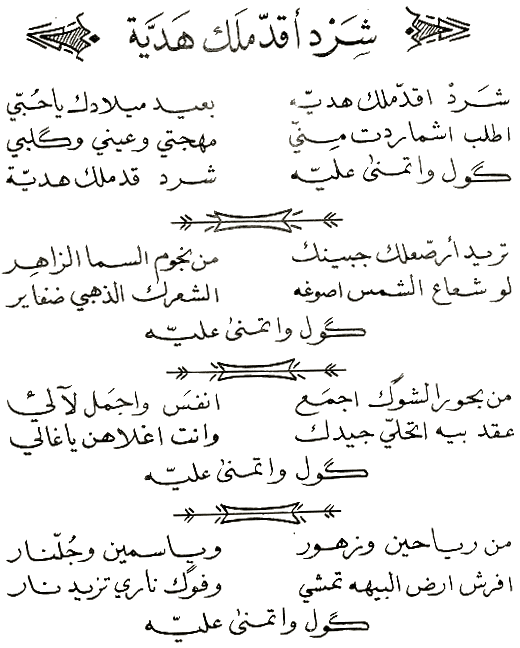 شِرَدْ أقدّملَك هَدیَّة
شَرَدْ اقدّملك هديّه بعيد ميلادك يا حُبّي
اطلب اشماردت مِنّي مهجتي وعيني وگلبي
گول واتمنىٰ عليّه شرد قدملك هديّة
تريد أرصّعلك جبينك من نجوم السما الزاهر
لو شعاع الشمس اصوغه الشعرك الذهبي ضفاير
گول واتمنىٰ عليّه
من بحور الشوگ اجمَع انفسَ واجمَل لآلئ
عقد بيه اتحلّي جيدك وانت اغلاهن ياغالي
گول واتمنىٰ عليّه
من رياحين وزهور وياسمين وجُلّنار
افرش ارض البيهه تمشي وفوگ ناري تزيد نار
گول واتمنىٰ عليّه